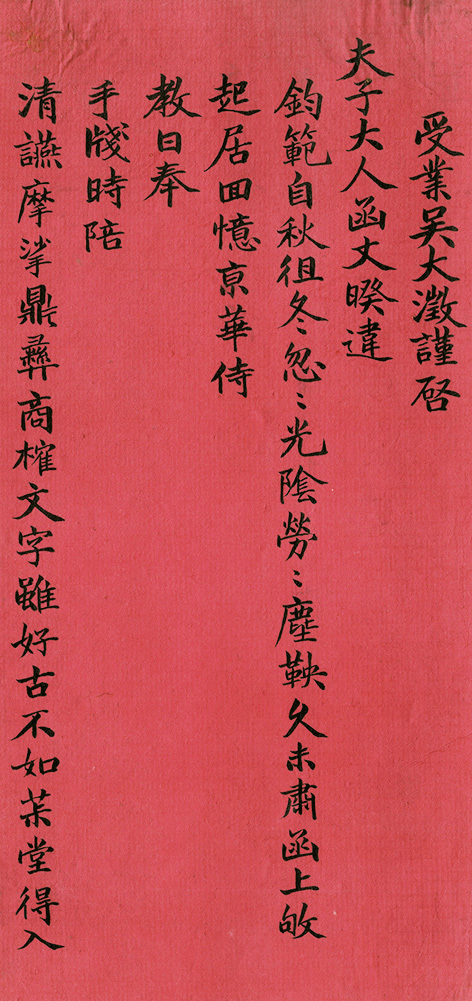 受業吴大澂謹啓
夫子大人函丈暌違
鈞範自秋徂冬忽〻光陰勞〻塵鞅久未肅函上敂
起居回憶京華侍
教日奉
手牋時陪
清讌摩挲鼎彝商榷文字雖好古不如茮堂得入